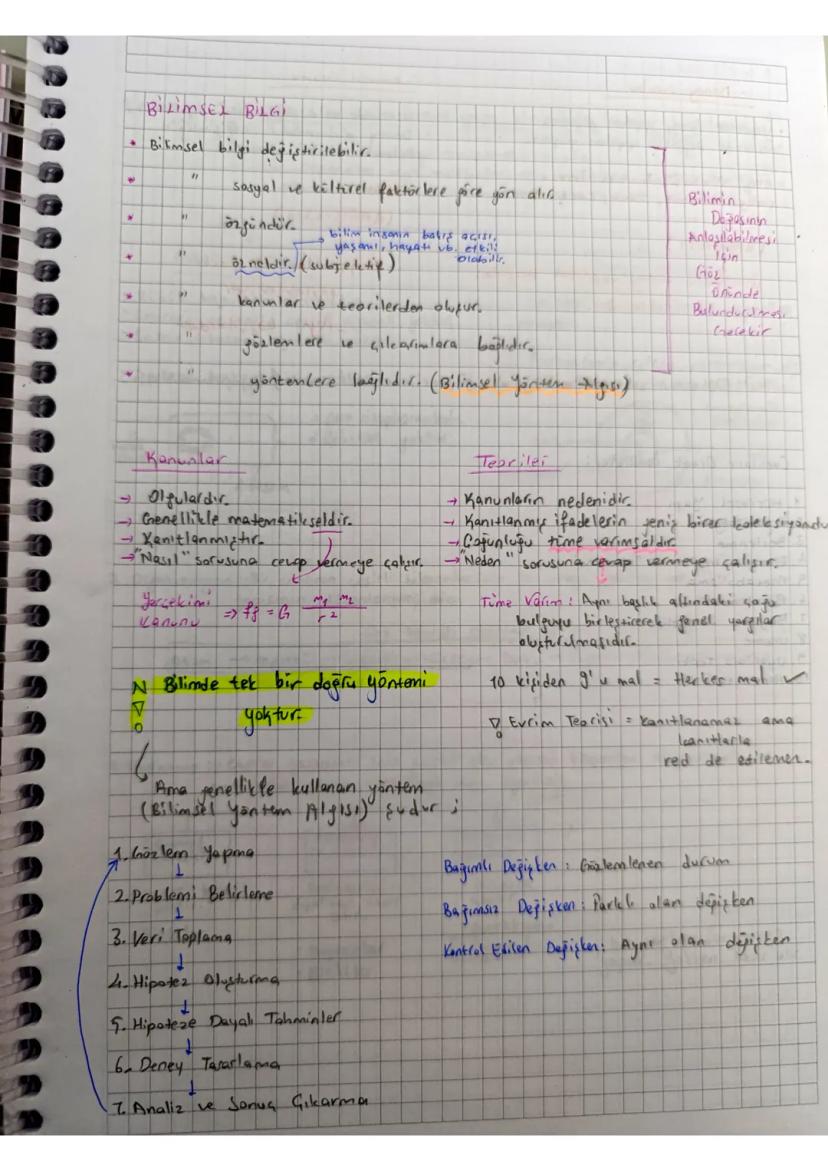 BİLİMSEL BİLGİ
* Bilimsel bilgi değiştirilebilir.
* " sosyal ve kültürel faktörlere göre yön alır.
* " özgündür.
→ bilim insanın bakış açısı,
yaşamı, hayatı vb. etkili
olabilir.
* " özneldir. (subjektif)
* " kanunlar ve teorilerden oluşur.
* " gözlemlere ve çıkarımlara bağlıdır.
* " yöntemlere bağlıdır. (Bilimsel Yöntem Algısı)
Bilimin
Doğasının
Anlaşılabilmesi
İçin
Göz
Önünde
Bulundurulması
Gerekir
Kanunlar
→ Olgulardır.
→ Genellikle matematikseldir.
→ Kanıtlanmıştır.
→ "Nasıl" sorusuna cevap vermeye çalışır.
Yerçekimi
Kanunu => Fg = G m1 m2 / r2
Teoriler
→ Kanunların nedenidir.
→ Kanıtlanmış ifadelerin geniş birer koleksiyonudu
→ Çoğunluğu tüme varımsaldır
→ "Neden" sorusuna cevap vermeye çalışır.
Tüme Varım: Aynı başlık altındaki çoğu
bulguyu birleştirerek genel yargılar
oluşturulmasıdır.
10 kişiden 9'u mal = Herkes mal ✓
Evrim Teorisi = kanıtlanamaz ama
kanıtlarla
red de edilemez.
Bilimde tek bir doğru yöntemi
yoktur.
Ama genellikle kullanan yöntem
(Bilimsel Yöntem Algısı) şudur ;
1. Gözlem Yapma
↓
2. Problemi Belirleme
↓
3. Veri Toplama
↓
4. Hipotez Oluşturma
↓
5. Hipoteze Dayalı Tahminler
↓
6. Deney Tasarlama
↓
7. Analiz ve Sonuç Çıkarma
Bağımlı Değişken: Gözlemlenen durum
Bağımsız Değişken: Farklı olan değişken
Kontrol Edilen Değişken: Aynı olan değişken